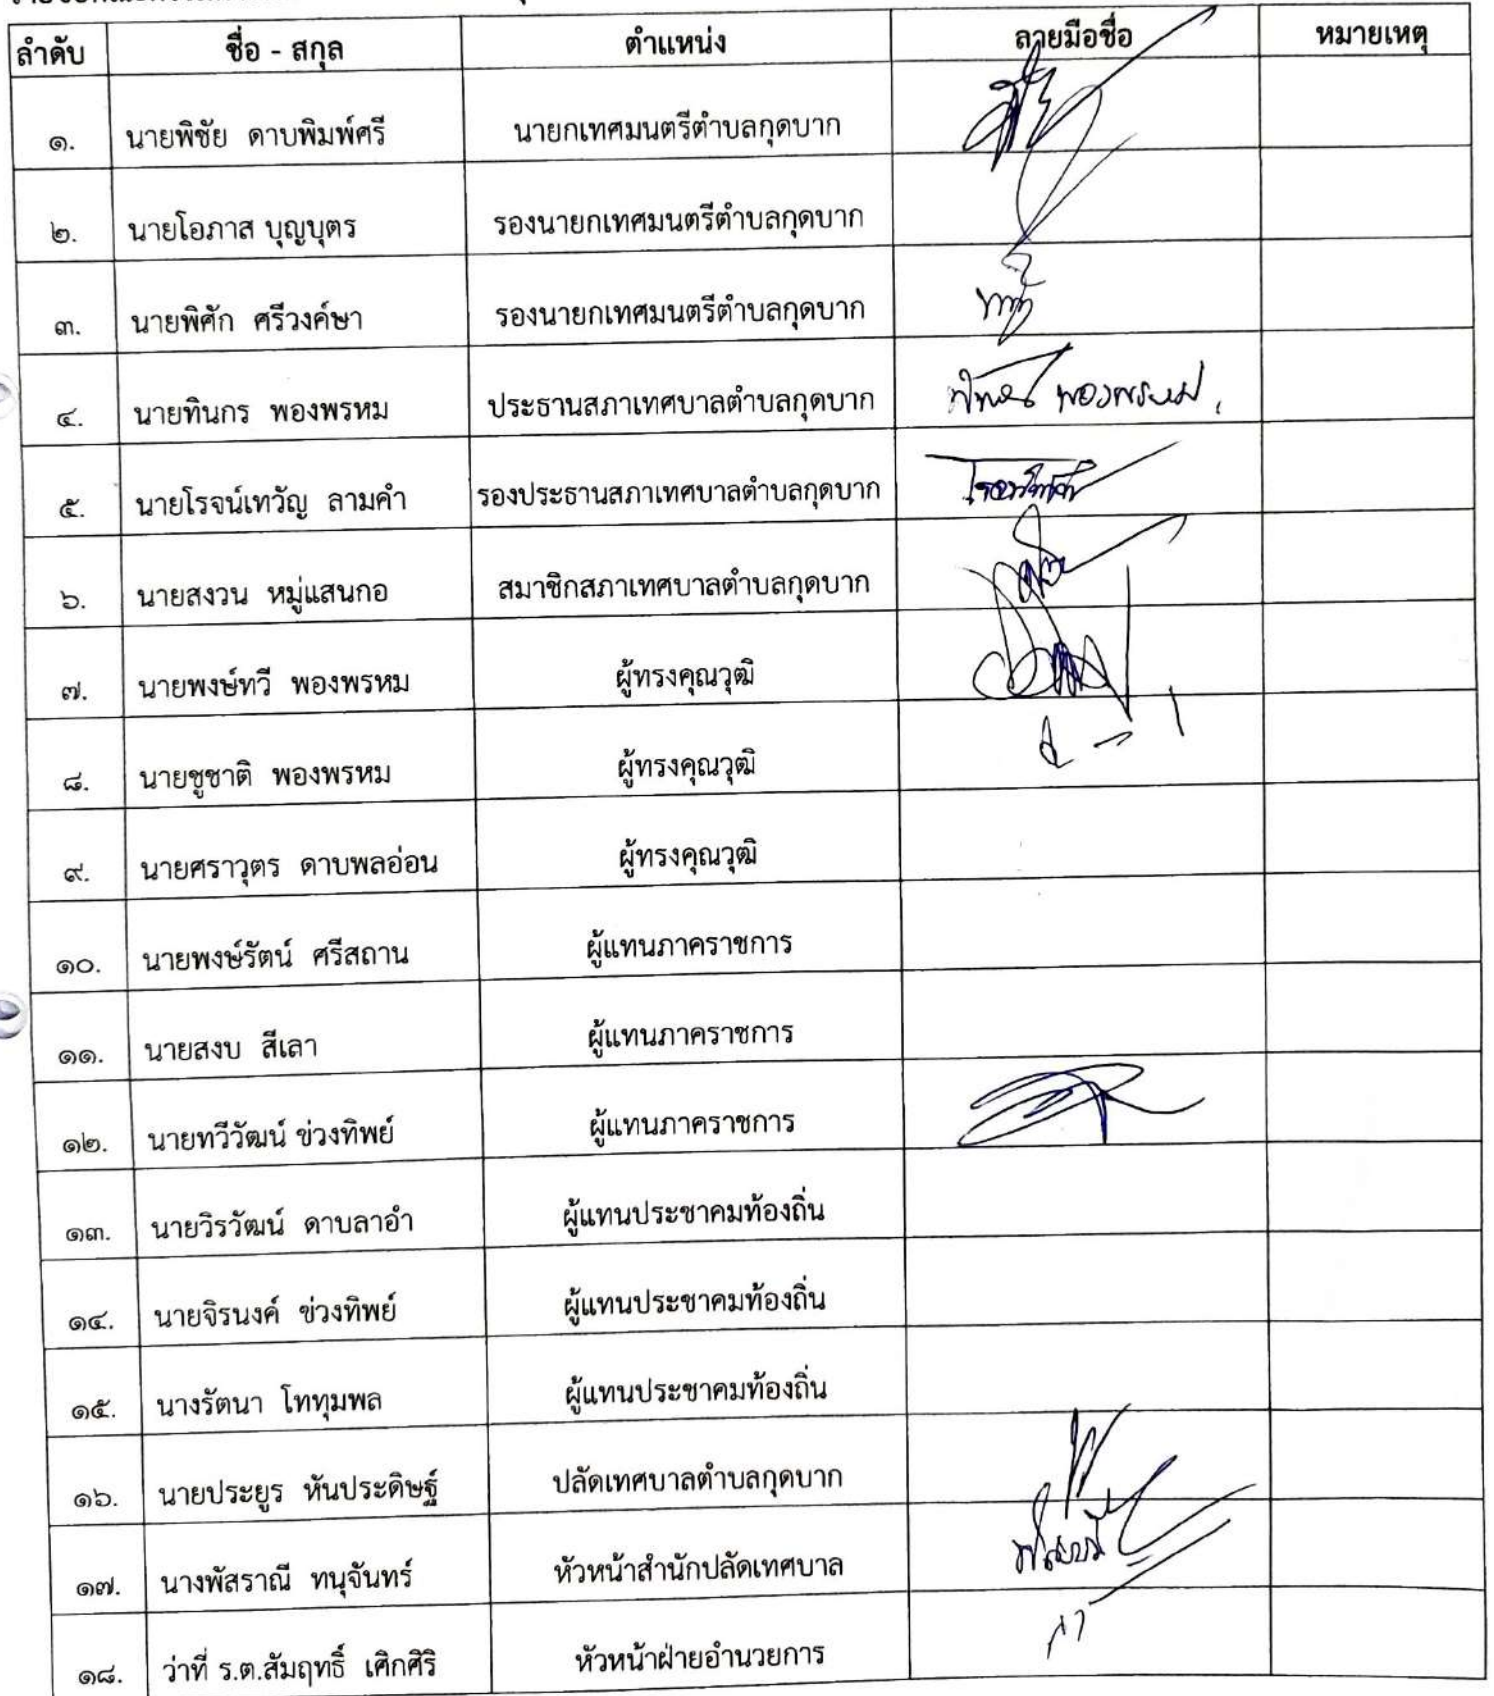 ลำดับ ชื่อ - สกุล ตำแหน่ง ลายมือชื่อ หมายเหตุ
๑. นายพิชัย ดาบพิมพ์ศรี นายกเทศมนตรีตำบลกุดบาก
๒. นายโอภาส บุญบุตร รองนายกเทศมนตรีตำบลกุดบาก
๓. นายพิศัก ศรีวงค์ษา รองนายกเทศมนตรีตำบลกุดบาก
๔. นายทินกร พองพรหม ประธานสภาเทศบาลตำบลกุดบาก พองพรหม
๕. นายโรจน์เทวัญ ลามคำ รองประธานสภาเทศบาลตำบลกุดบาก
๖. นายสงวน หมู่แสนกอ สมาชิกสภาเทศบาลตำบลกุดบาก
๗. นายพงษ์ทวี พองพรหม ผู้ทรงคุณวุฒิ
๘. นายชูชาติ พองพรหม ผู้ทรงคุณวุฒิ
๙. นายศราวุตร ดาบพลอ่อน ผู้ทรงคุณวุฒิ
๑๐. นายพงษ์รัตน์ ศรีสถาน ผู้แทนภาคราชการ
๑๑. นายสงบ สีเลา ผู้แทนภาคราชการ
๑๒. นายทวีวัฒน์ ข่วงทิพย์ ผู้แทนภาคราชการ
๑๓. นายวิรวัฒน์ ดาบลาอำ ผู้แทนประชาคมท้องถิ่น
๑๔. นายจิรนงค์ ข่วงทิพย์ ผู้แทนประชาคมท้องถิ่น
๑๕. นางรัตนา โททุมพล ผู้แทนประชาคมท้องถิ่น
๑๖. นายประยูร หันประดิษฐ์ ปลัดเทศบาลตำบลกุดบาก
๑๗. นางพัสราณี ทนุจันทร์ หัวหน้าสำนักปลัดเทศบาล
๑๘. ว่าที่ ร.ต.สัมฤทธิ์ เศิกศิริ หัวหน้าฝ่ายอำนวยการ